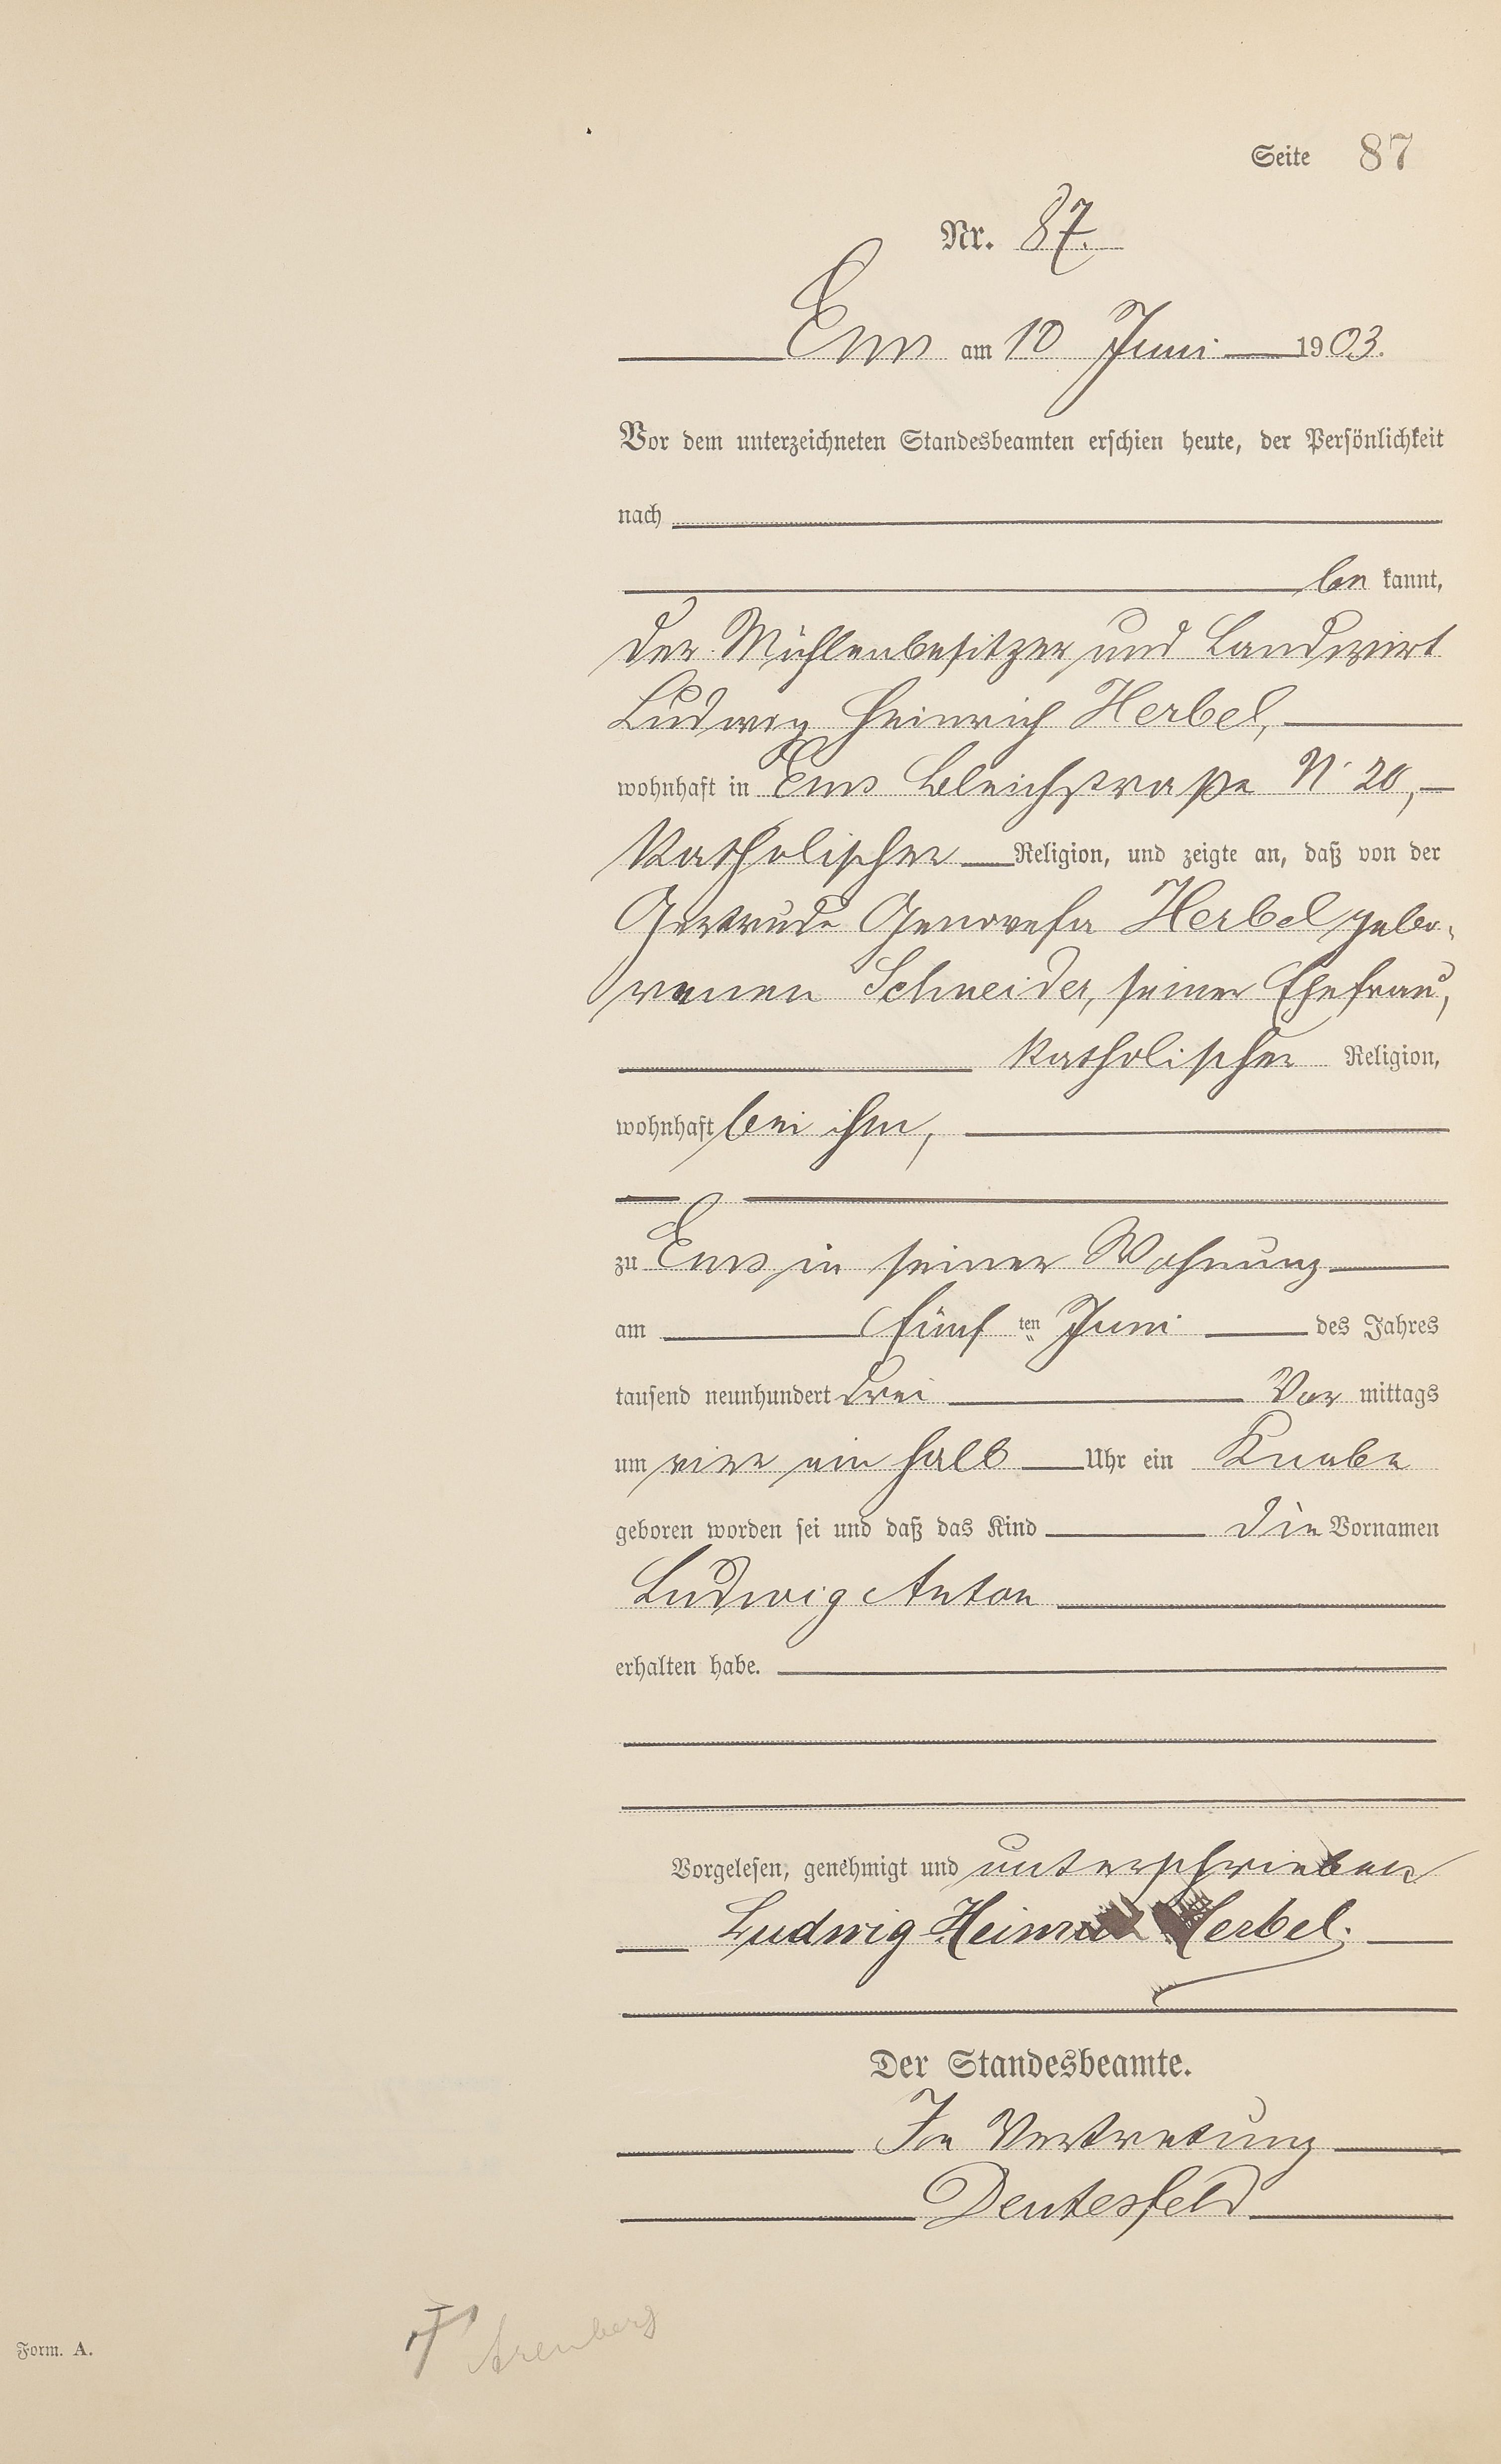 Seite 87
Nr. 87.
Ems am 10 Juni 1903.
Vor dem unterzeichneten Standesbeamten erschien heute, der Persönlichkeit
nach
be kannt,
der Mühlenbesitzer und Landwirt
Ludwig Heinrich Herbel,
wohnhaft in Ems Bleichstraße N 20,
katholischer Religion, und zeigte an, daß von der
Gertrude Genovefa Herbel gebo-
renen Schneider, seiner Ehefrau,
katholischer Religion,
wohnhaft bei ihm,
zu Ems in seiner Wohnung
am fünf ten Juni des Jahres
tausend neunhundert drei Vor mittags
um vier ein halb Uhr ein Knabe
geboren worden sei und daß das Kind die Vornamen
Ludwig Anton
erhalten habe.
Vorgelesen, genehmigt und unterschrieben
Ludwig Heinrich Herbel.
Der Standesbeamte.
In Vertretung
Deutesfeld
Form. A.
† Arenberg